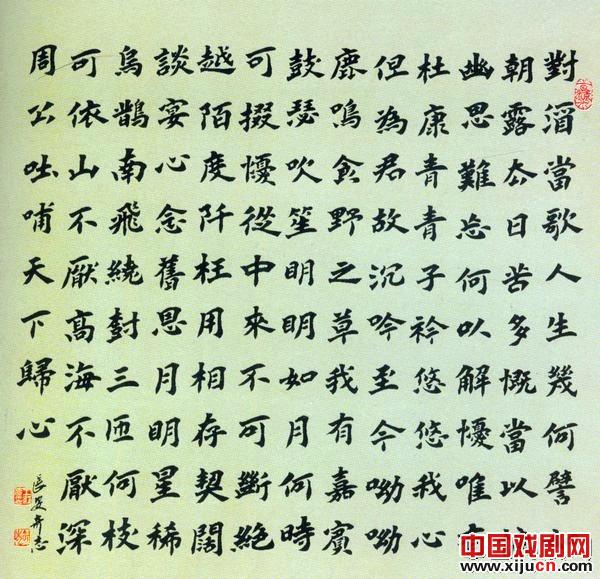 對酒當歌人生幾何譬
朝露去日苦多慨當以
幽思難忘何以解憂唯
杜康青青子衿悠悠我心
但為君故沉吟至今呦呦
鹿鳴食野之草我有嘉賓
鼓瑟吹笙明明如月何時
可掇憂從中來不可斷絕
越陌度阡枉用相存契闊
談宴心念舊恩月明星稀
烏鵲南飛繞樹三匝何枝
可依山不厭高海不厭深
周公吐哺天下歸心
中国戏剧网
www.xijucn.com